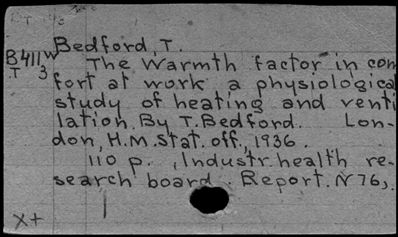 Bedford, T.
B411w The Warmth factor in com
T 3 fort at work a physiological
study of heating and venti
lation. By T. Bedford. Lon-
don, H.M. Stat. off., 1936.
110 p. , Industr. health re-
search board. Report. N 76,.
x+